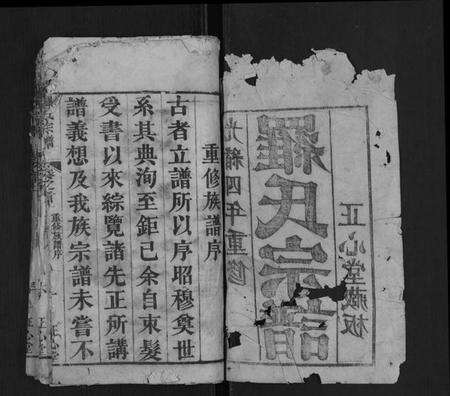 正心堂藏板
羅氏宗譜
光緒四年重修
重修族譜序
古者立譜所以序昭穆奠世
系其典洵至鉅已余自束髮
受書以來綜覽諸先正所講
譜義想及我族宗譜未嘗不
重修族譜序